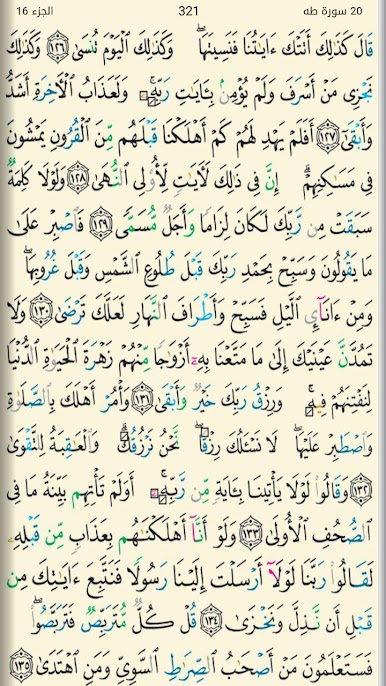 الجزء 16 321 20 سورة طه
قَالَ كَذَٰلِكَ أَتَتْكَ ءَايَٰتُنَا فَنَسِيتَهَا ۖ وَكَذَٰلِكَ ٱلْيَوْمَ تُنسَىٰ ١٢٦ وَكَذَٰلِكَ
نَجْزِى مَنْ أَسْرَفَ وَلَمْ يُؤْمِنۢ بِـَٔايَٰتِ رَبِّهِۦ ۚ وَلَعَذَابُ ٱلْأَخِرَةِ أَشَدُّ
وَأَبْقَىٰٓ ١٢٧ أَفَلَمْ يَهْدِ لَهُمْ كَمْ أَهْلَكْنَا قَبْلَهُم مِّنَ ٱلْقُرُونِ يَمْشُونَ
فِى مَسَٰكِنِهِمْ ۗ إِنَّ فِى ذَٰلِكَ لَأَيَٰتٍ لِّأُو۟لِى ٱلنُّهَىٰ ١٢٨ وَلَوْلَا كَلِمَةٌ
سَبَقَتْ مِن رَّبِّكَ لَكَانَ لِزَامًا وَأَجَلٌ مُّسَمًّى ١٢٩ فَٱصْبِرْ عَلَىٰ
مَا يَقُولُونَ وَسَبِّحْ بِحَمْدِ رَبِّكَ قَبْلَ طُلُوعِ ٱلشَّمْسِ وَقَبْلَ غُرُوبِهَا ۖ
وَمِنْ ءَانَآئِ ٱلَّيْلِ فَسَبِّحْ وَأَطْرَافَ ٱلنَّهَارِ لَعَلَّكَ تَرْضَىٰ ١٣٠ وَلَا
تَمُدَّنَّ عَيْنَيْكَ إِلَىٰ مَا مَتَّعْنَا بِهِۦٓ أَزْوَٰجًا مِّنْهُمْ زَهْرَةَ ٱلْحَيَوٰةِ ٱلدُّنْيَا
لِنَفْتِنَهُمْ فِيهِ ۚ وَرِزْقُ رَبِّكَ خَيْرٌ وَأَبْقَىٰ ١٣١ وَأْمُرْ أَهْلَكَ بِٱلصَّلَوٰةِ
وَٱصْطَبِرْ عَلَيْهَا ۖ لَا نَسْـَٔلُكَ رِزْقًا ۖ نَّحْنُ نَرْزُقُكَ ۗ وَٱلْعَٰقِبَةُ لِلتَّقْوَىٰ
١٣٢ وَقَالُوا۟ لَوْلَا يَأْتِينَا بِـَٔايَةٍ مِّن رَّبِّهِۦٓ ۚ أَوَلَمْ تَأْتِهِم بَيِّنَةُ مَا فِى
ٱلصُّحُفِ ٱلْأُولَىٰ ١٣٣ وَلَوْ أَنَّآ أَهْلَكْنَٰهُم بِعَذَابٍ مِّن قَبْلِهِۦ
لَقَالُوا۟ رَبَّنَا لَوْلَآ أَرْسَلْتَ إِلَيْنَا رَسُولًا فَنَتَّبِعَ ءَايَٰتِكَ مِن
قَبْلِ أَن نَّذِلَّ وَنَخْزَىٰ ١٣٤ قُلْ كُلٌّ مُّتَرَبِّصٌ فَتَرَبَّصُوا۟ ۖ
فَسَتَعْلَمُونَ مَنْ أَصْحَٰبُ ٱلصِّرَٰطِ ٱلسَّوِىِّ وَمَنِ ٱهْتَدَىٰ ١٣٥